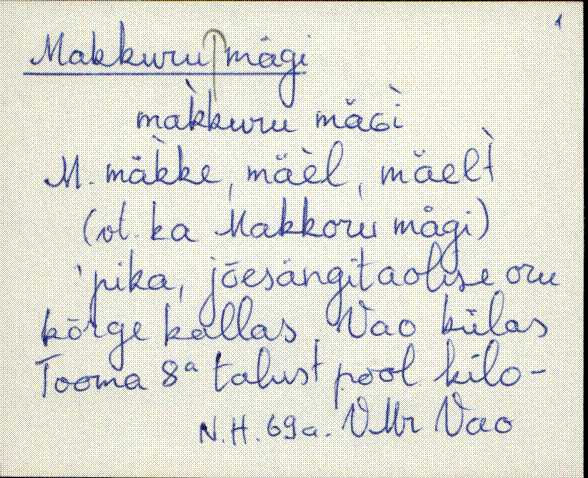 1
Makkuru mägi
màkkuru mäGì
M. mäkke, mäèl, mäelt̀
(vt. ka Makkoru mägi)
'pika, jõesängitaolise oru
kõrge kallas Vao külas
Tooma 8ª talust pool kilo-
N.H. 69a. VMr Vao